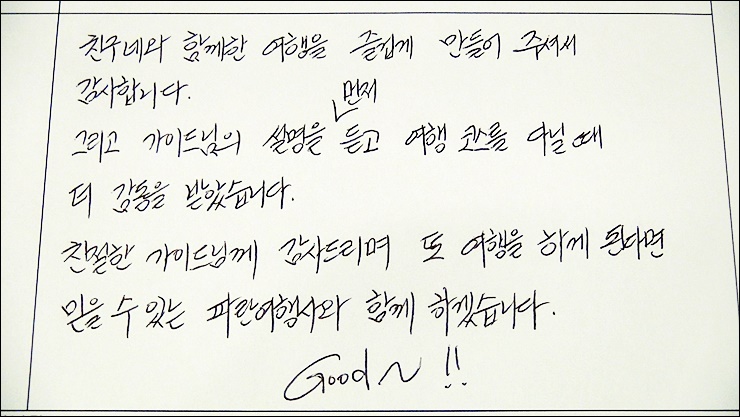 친구네와 함께한 여행을 즐겁게 만들어 주셔서
감사합니다.
먼저
그리고 가이드님의 설명을 듣고 여행 코스를 다닐 때
더 감동을 받았습니다.
친절한 가이드님께 감사드리며 또 여행을 하게 된다면
믿을 수 있는 파란여행사와 함께 하겠습니다.
Good~!!